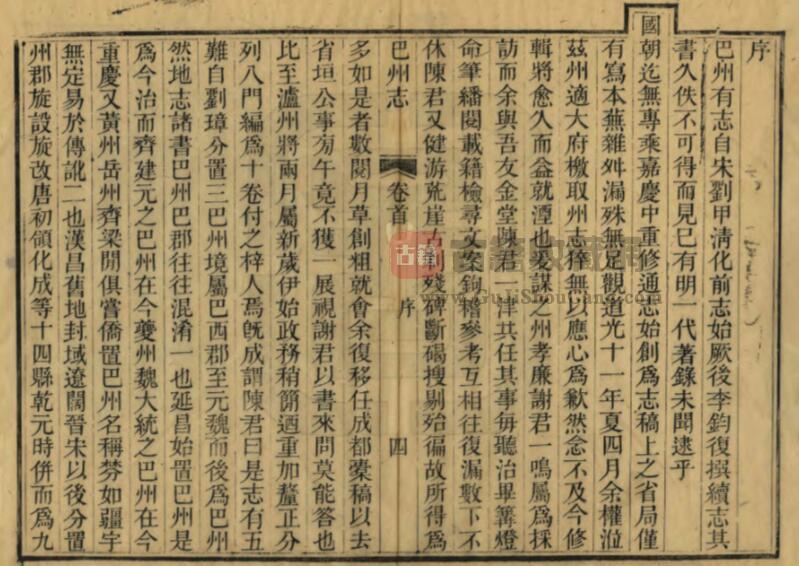 序
巴州有志自宋劉甲淸化前志始厥後李鈞復撰續志其
書久佚不可得而見巳有明一代著錄未聞逮乎
國朝迄無專乘嘉慶中重修通志始創爲志稿上之省局僅
有寫本蕪雜舛漏殊無足觀道光十一年夏四月余權涖
茲州適大府檄取州志猝無以應心爲歉然念不及今修
輯將愈久而益就湮也爰謀之州孝廉謝君一鳴屬爲採
訪而余與吾友金堂陳君一津共任其事每聽治畢篝燈
命筆繙閱載籍檢尋文案鉤稽參考互相往復漏數下不
休陳君又健游荒崖古刹殘碑斷碣搜剔始徧故所得爲
巴州志
卷首
序
四
多如是者數閱月草創粗就會余復移任成都橐稿以去
省垣公事旁午竟不獲一展視謝君以書來問莫能答也
比至瀘州將兩月屬新歲伊始政務稍簡迺重加釐正分
列八門編爲十卷付之梓人焉旣成謂陳君曰是志有五
難自劉璋分置三巴州境屬巴西郡至元魏而後爲巴州
然地志諸書巴州巴郡往往混淆一也延昌始置巴州是
爲今治而齊建元之巴州在今夔州魏大統之巴州在今
重慶又黃州岳州齊梁閒俱嘗僑置巴州名稱棼如疆宇
無定易於傳訛二也漢昌舊地封域遼闊晉宋以後分置
州郡旋設旋改唐初領化成等十四縣乾元時併而爲九
古籍
www.GuJiShouCang.com